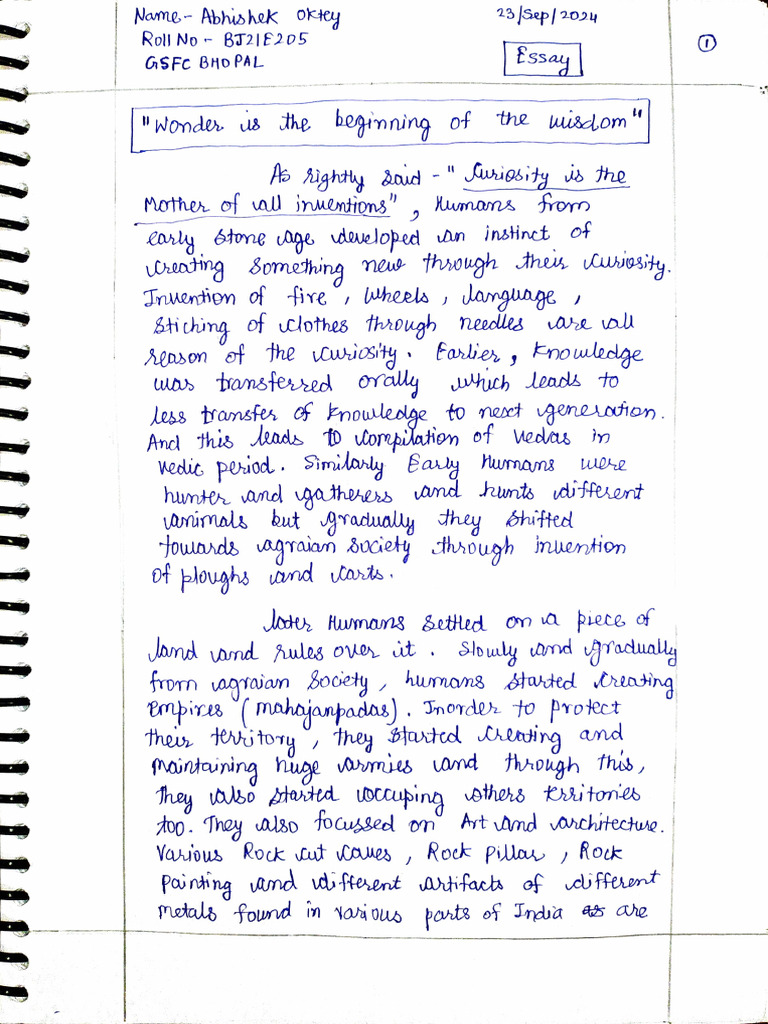 Name - Abhishek Oktey
23/Sep/2024
Roll No - BJ21E205
GSFC BHOPAL
Essay
1
"Wonder is the beginning of the wisdom"
As rightly said - "Curiosity is the
Mother of all inventions", Humans from
early stone age developed an instinct of
creating something new through their curiosity.
Invention of fire, wheels, language,
Stiching of clothes through needles are all
reason of the curiosity. Earlier, knowledge
was transferred orally which leads to
less transfer of knowledge to next generation.
And this leads to compilation of vedas in
vedic period. Similarly Early humans were
hunter and gatherers and hunts different
animals but gradually they shifted
towards agraian society through invention
of ploughs and carts.
later Humans settled on a piece of
land and rules over it. Slowly and gradually
from agraian society, humans started creating
empires (mahajanpadas). Inorder to protect
their territory, they started creating and
maintaining huge armies and through this,
they also started occuping others territories
too. They also focussed on Art and architecture.
Various Rock cut caves, Rock Pillar, Rock
Painting and different artifacts of different
metals found in various parts of India as are